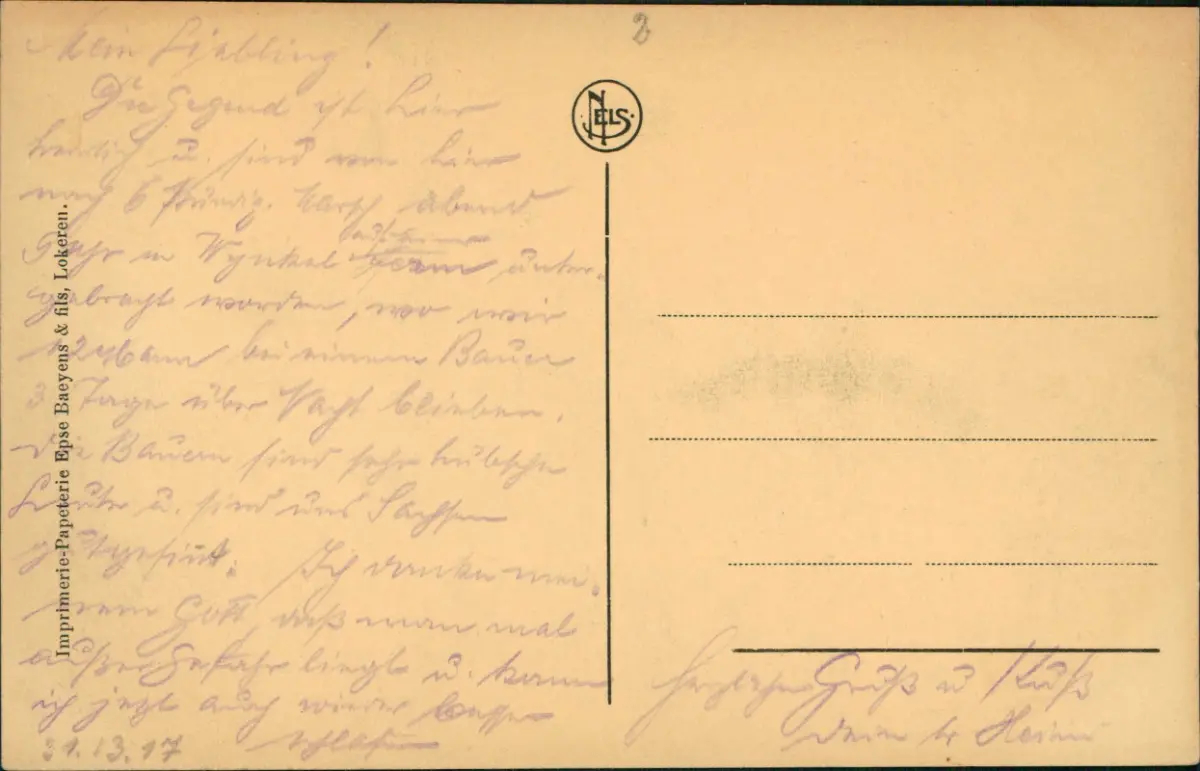 2
Mein Liebling!
Die Gegend ist hier
herrlich u. sind von hier
nach 6 stündig. Marsch abend
9 Uhr in Wynkel auf einer
Ferm unter-
gebracht worden, wo wir
12 Mann bei einem Bauer
3 Tage über Nacht blieben.
Die Bauern sind sehr hübsche
Leute u. sind uns Sachsen
gutgesinnt. Ich danke mei-
nem Gott, daß man mal
außer Gefahr liegt u. kann
ich jetzt auch wieder besser
schlafen
31. 3. 17
NELS.
Imprimerie-Papeterie Epse Baeyens & fils, Lokeren.
Herzlichen Gruß u Kuß
Dein lb